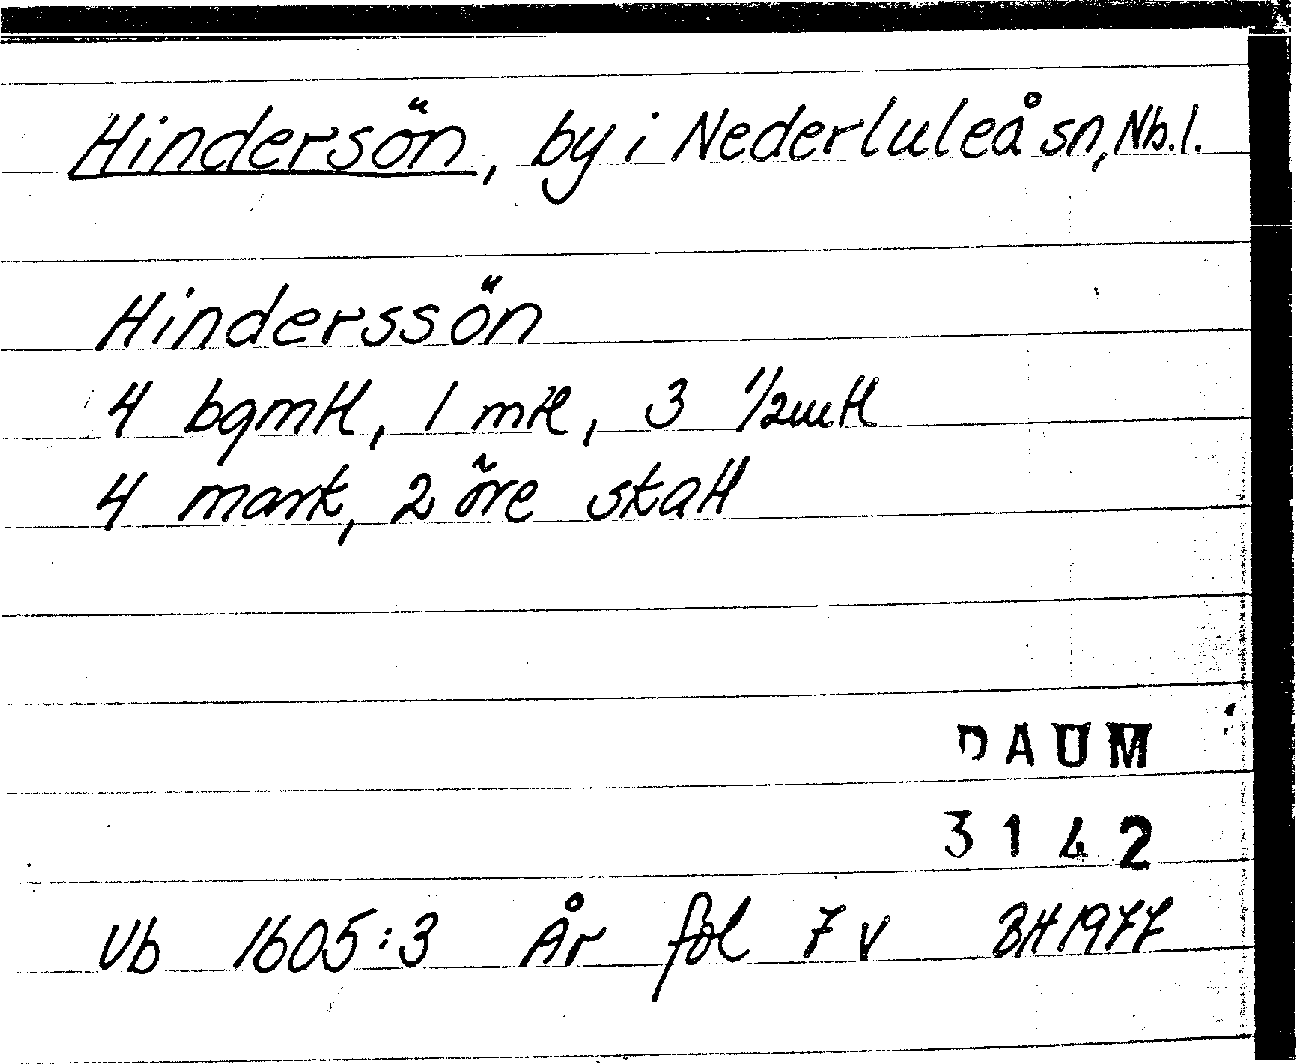 Hindersön, by i Nederluleå sn, Nb.l.
Hinderssön
4 bgmtl, 1 mtl, 3 1/2 mtl
4 mark, 2 öre skatt
DAUM
3142
Vb 1605:3 År fol 7 v BH 1977